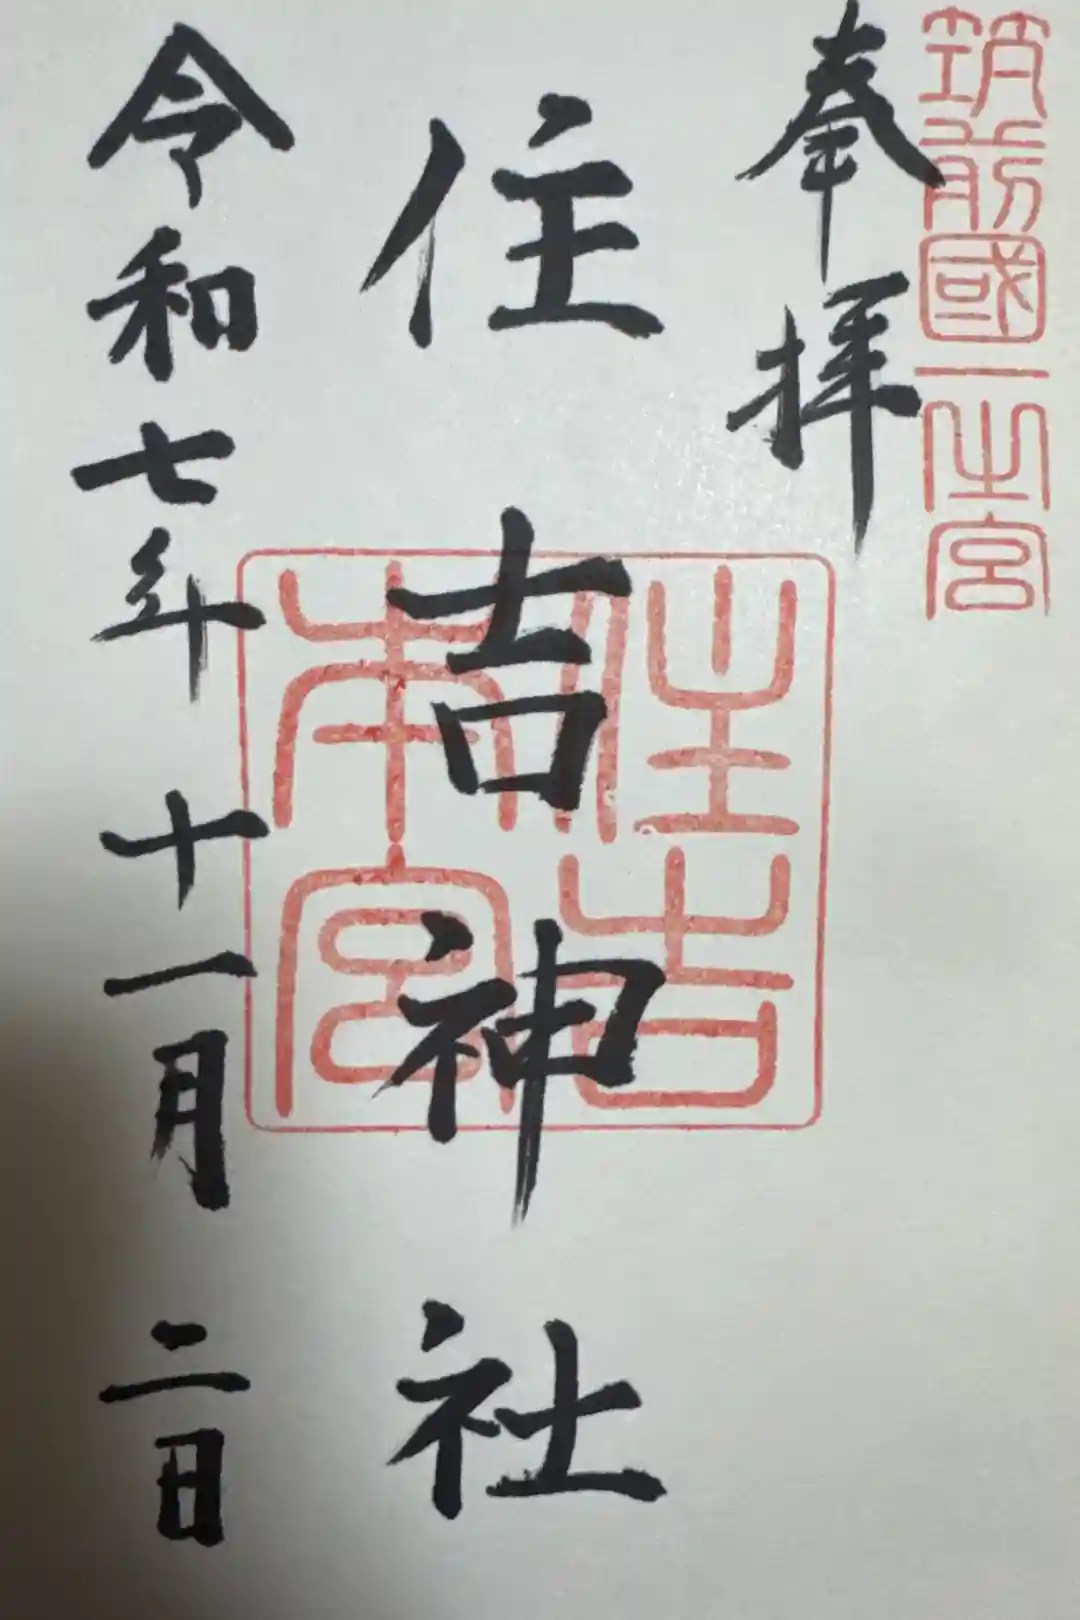 筑前國一之宮
奉拝
住吉神社
住吉
本宮
令和七年十一月二日